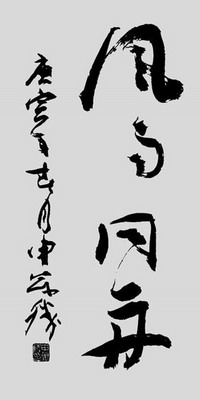 風雨同舟
庚寅年月申